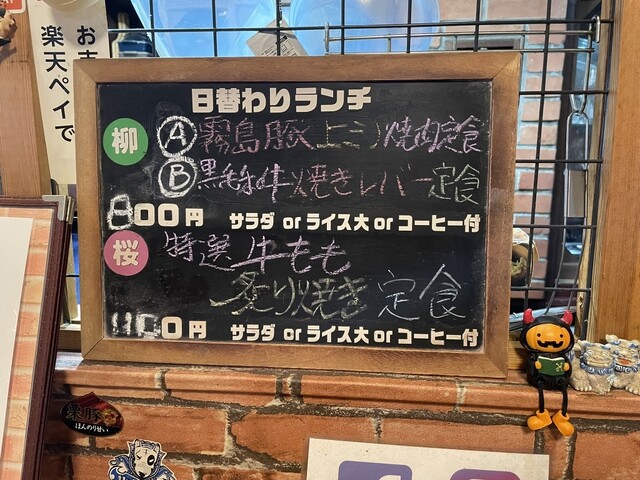 お支
楽天ペイで
日替わりランチ
柳 Ⓐ霧島豚上ミノ焼肉定食
Ⓑ黒毛和牛焼きレバー定食
800円 サラダ or ライス大 or コーヒー付
桜 特選牛もも
炙り焼き定食
1100円 サラダ or ライス大 or コーヒー付
ほんのりせい